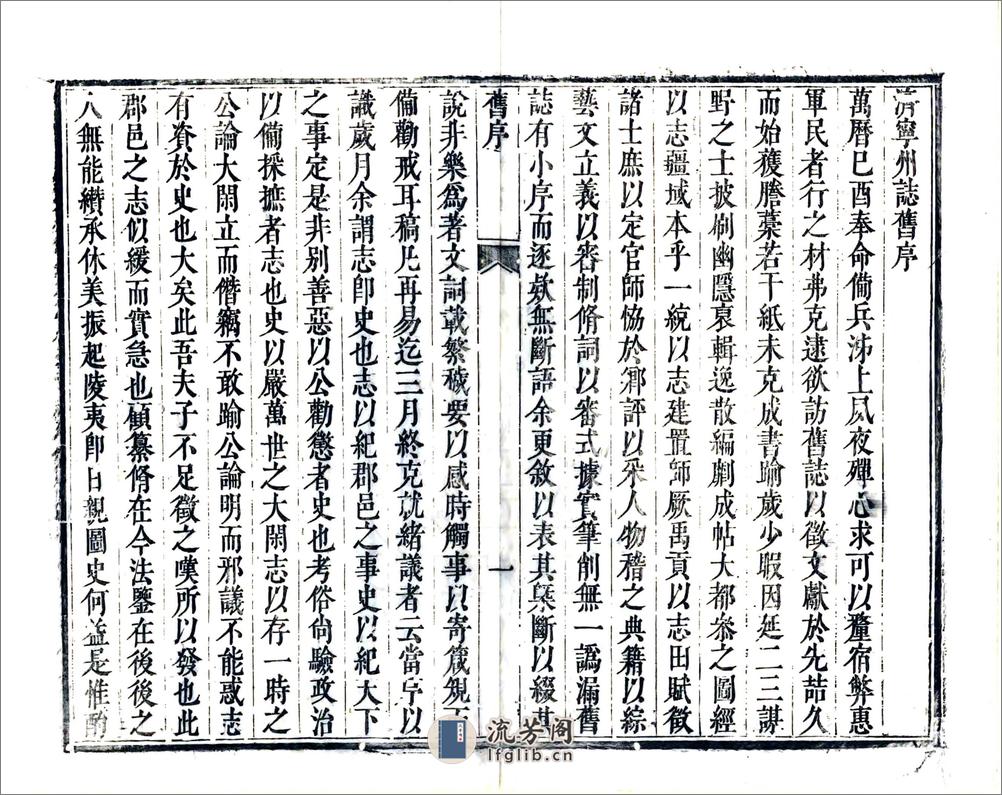 濟寧州誌舊序
萬曆已酉奉命備兵沛上夙夜殫心求可以釐宿弊惠
軍民者行之材弗克逮欲訪舊誌以徵文獻於先喆久
而始獲謄藁若干紙未克成書踰歲少暇因延二三諶
野之士披刷幽隱裒輯逸散編劘成帖大都叅之圖經
以志疆域本乎一統以志建置師厥禹貢以志田賦徵
諸士庶以定官師恊於鄉評以采人物稽之典籍以綜
藝文立義以審制脩詞以審式據實筆削無一譌漏舊
誌有小序而逐欵無斷語余更敘以表其槩斷以綴其
舊序
一
說非樂爲著文詞載繁穢要以感時觸事以寄箴規
備勸戒耳稿凡再易迄三月終克就緒議者云當序以
識歲月余謂志卽史也志以紀郡邑之事史以紀天下
之事定是非别善惡以公勸懲者史也考俗尙驗政治
以備採摭者志也史以嚴萬世之大閑志以存一時之
公論大閑立而僭竊不敢踰公論明而邪議不能惑志
有資於史也大矣此吾夫子不足徵之嘆所以發也此
郡邑之志似緩而實急也顧纂脩在今法鑒在後後之
人無能纘承休美振起陵夷卽日親圖史何益是惟酌
流芳阁
lfglib.cn